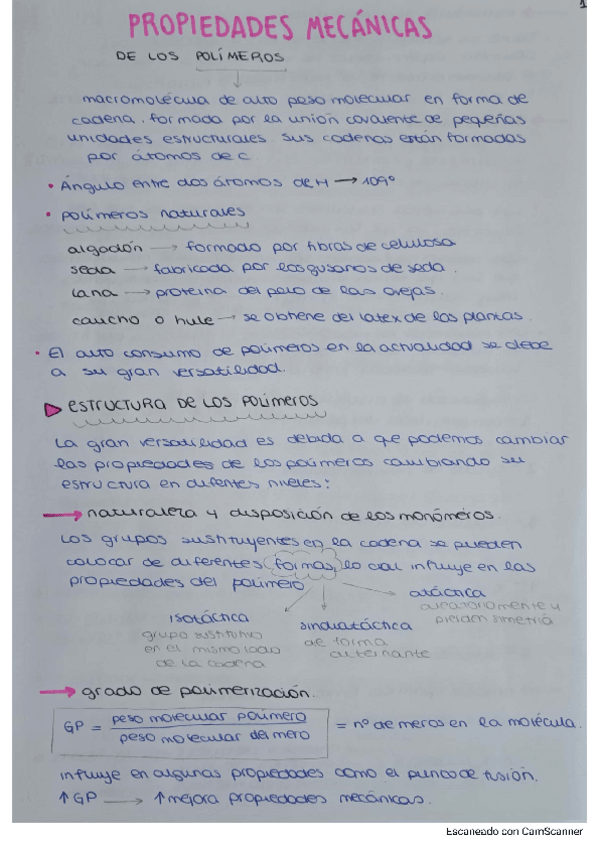 1
PROPIEDADES MECÁNICAS
DE LOS POLÍMEROS
macromolécula de alto peso molecular en forma de
cadena, formada por la unión covalente de pequeñas
unidades estructurales sus cadenas están formadas
por átomos de C.
• Ángulo entre dos átomos de H → 109°
• polímeros naturales
algodón → formado por fibras de celulosa
seda → fabricada por los gusanos de seda.
lana → proteína del pelo de las ovejas.
caucho o hule → se obtiene del latex de las plantas.
• El alto consumo de polímeros en la actualidad se debe
a su gran versatilidad.
ESTRUCTURA DE LOS POLÍMEROS
La gran versatilidad es debida a que podemos cambiar
las propiedades de los polímeros cambiando su
estructura en difentes niveles:
→ naturaleza y disposición de los monómeros.
Los grupos sustituyentes en la cadena se pueden
colocar de diferentes formas, lo cual influye en las
propiedades del polímero
atáctica
aleatoriamente y
pierden simetría
isotáctica
grupo sustitutivo
en el mismo lado
de la cadena
sindiotáctica
de forma
alternante
→ grado de polimerización.
GP = peso molecular polímero / peso molecular del mero = nº de meros en la molécula.
influye en algunas propiedades como el punto de fusión.
↑ GP → ↑ mejora propiedades mecánicas.
Escaneado con CamScanner